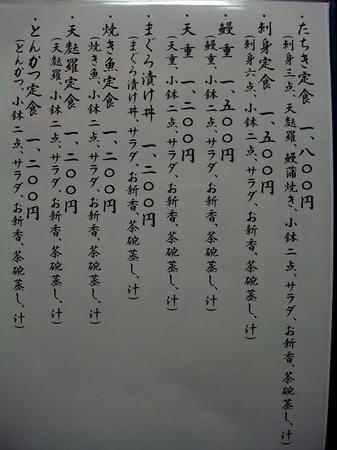 ・たちき定食 一、八〇〇円
(刺身三点、天麩羅、鰻蒲焼き、小鉢二点、サラダ、お新香、茶碗蒸し、汁)
・刺身定食 一、五〇〇円
(刺身六点、小鉢二点、サラダ、お新香、茶碗蒸し、汁)
・鰻重 一、五〇〇円
(鰻重、小鉢二点、サラダ、お新香、茶碗蒸し、汁)
・天重 一、二〇〇円
(天重、小鉢二点、サラダ、お新香、茶碗蒸し、汁)
・まぐろ漬け丼 一、二〇〇円
(まぐろ漬け丼、サラダ、お新香、茶碗蒸し、汁)
・焼き魚定食 一、二〇〇円
(焼き魚、小鉢二点、サラダ、お新香、茶碗蒸し、汁)
・天麩羅定食 一、二〇〇円
(天麩羅、小鉢二点、サラダ、お新香、茶碗蒸し、汁)
・とんかつ定食 一、二〇〇円
(とんかつ、小鉢二点、サラダ、お新香、茶碗蒸し、汁)